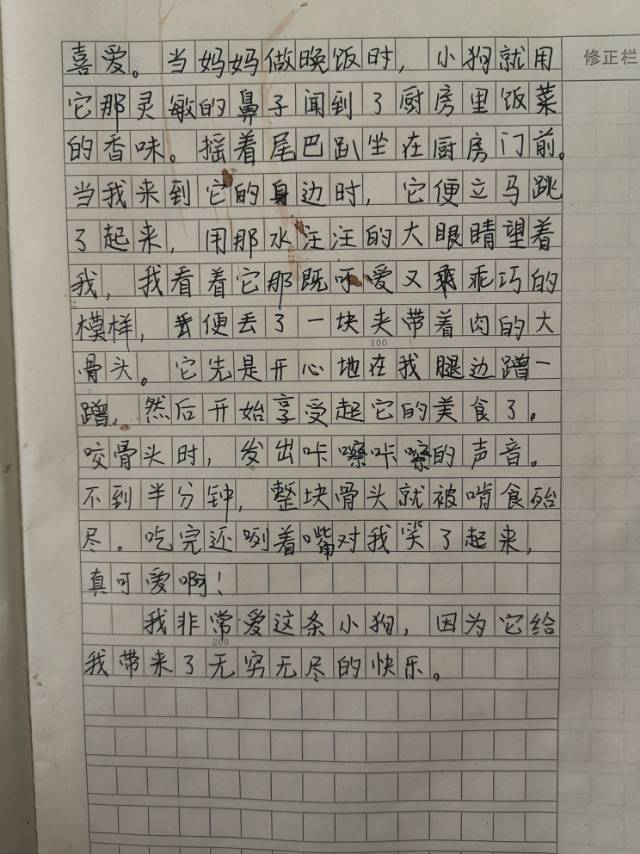 修正栏
喜爱。当妈妈做晚饭时，小狗就用
它那灵敏的鼻子闻到了厨房里饭菜
的香味。摇着尾巴趴坐在厨房门前。
当我来到它的身边时，它便立马跳
了起来，用那水汪汪的大眼睛望着
我，我看着它那既可爱又乖乖巧的
模样，丢便丢了一块夹带着肉的大
100
骨头。它先是开心地在我腿边蹭一
蹭，然后开始享受起它的美食了。
咬骨头时，发出咔嚓咔嚓的声音。
不到半分钟，整块骨头就被啃食殆
尽。吃完还咧着嘴对我笑了起来，
真可爱啊！
我非常爱这条小狗，因为它给
200
我带来了无穷无尽的快乐。